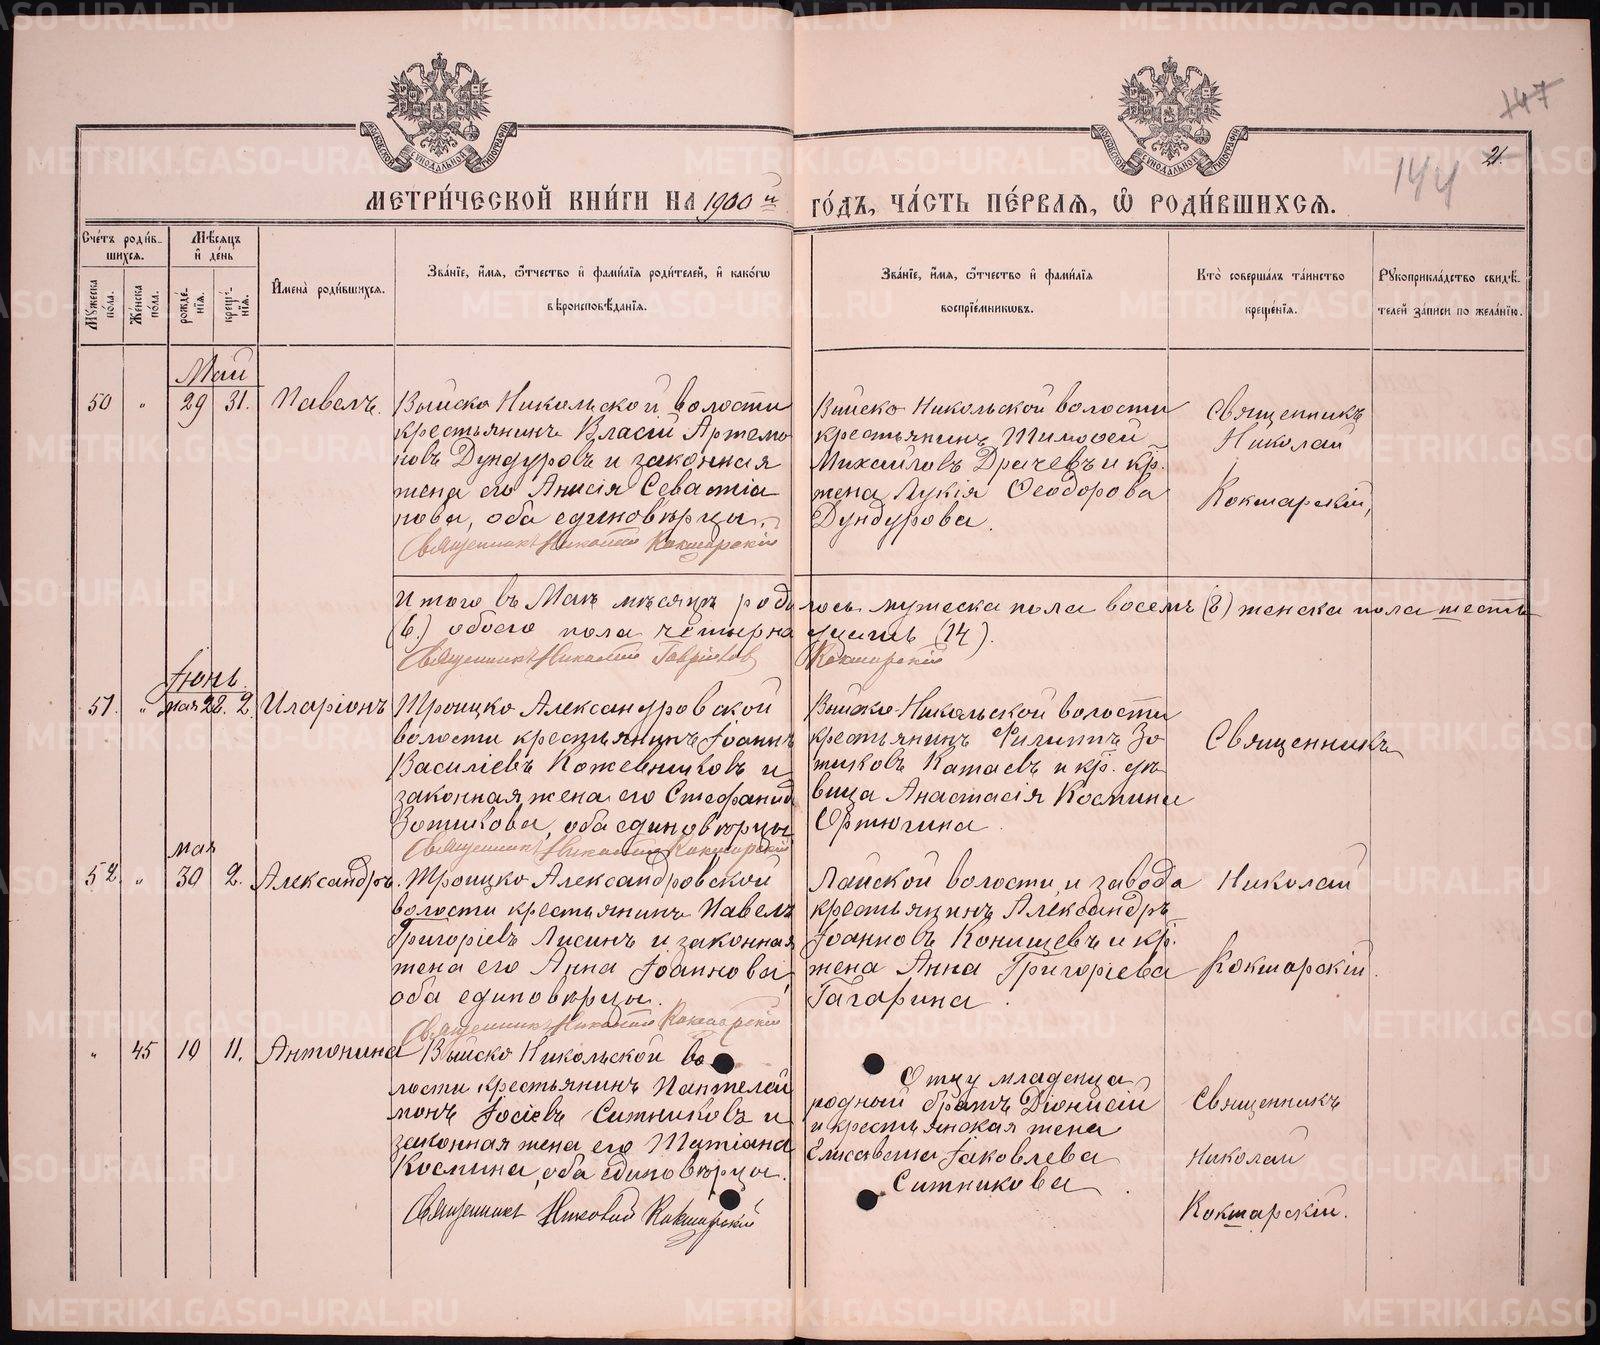 147
144
21.
МОСКОВСКОЙ СѴНОДАЛЬНОЙ ТИПОГРАФІИ
МОСКОВСКОЙ СѴНОДАЛЬНОЙ ТИПОГРАФІИ
МЕТРИ́ЧЕСКОЙ КНИ́ГИ НА 1900 й ГО́ДЪ, ЧА́СТЬ ПЕ́РВАѦ, Ѽ РОДИ́ВШИХСѦ.
Сче́тъ роди́в-
шихся.
Мѣ́сяцъ
и҆ де́нь
Мꙋжеска
по́ла.
Же́нска
по́ла.
рожде́-
нїѧ.
креще́-
нїѧ.
И҆мена̀ роди́вшихсѧ.
Зва́нїе, и҆́мѧ, ѻ҆́тчество и҆ фами́лїѧ роди́телей, и҆ како́гѡ
вѣроисповѣ́данїѧ.
Зва́нїе, и҆́мѧ, ѻ҆́тчество и҆ фами́лїѧ
воспрїе́мникѡвъ.
Кто̀ соверша́лъ та́инство
креще́нїѧ.
Рꙋкоприкла́дство свидѣ́-
телей за́писи по жела́нїю.
Май
50 „ 29 31. Павелъ.
Выйско Никольской волости
крестьянинъ Власій Артемо
новъ Дундуровъ и законная
жена его Анисія Севастіа
нова, оба единовѣрцы.
Священникъ Николай Кокшарскій
Выйско Никольской волости
крестьянинъ Тимоѳей
Михайловъ Драчевъ и кр.
жена Лукія Ѳеодорова
Дундурова.
Священникъ
Николай
Кокшарскій,
Итого въ Маѣ мѣсяцѣ родилось мужеска пола восемь (8) женска пола шесть
(6.) обоего пола четырнадцать (14).
Священникъ Николай Гаврілов Кокшарскій
Іюнь
51. „ мая 28. 2. Иларіонъ
Троицко Александровской
волости крестьянинъ Іоаннъ
Василіевъ Кожевниковъ и
законная жена его Стефанида
Зотикова, оба единовѣрцы
Священникъ Николай Кокшарскій
Выйско-Никольской волости
крестьянинъ Филиппъ Зо
тиковъ Катаевъ и кр. дѣ
вица Анастасія Космина
Ортюгина.
Священникъ
мая
52. „ 30 2. Александръ.
Троицко Александровской
волости крестьянинъ Павелъ
Григоріевъ Лисинъ и законная
жена его Анна Іоаннова,
оба единовѣрцы.
Священникъ Николай Кокшарскій
Лайской волости и завода
крестьянинъ Александръ
Іоанновъ Конищевъ и кр.
жена Анна Григоріева
Гагарина.
Николай
Кокшарскій.
„ 45 10 11. Антонина
Выйско Никольской во
лости крестьянинъ Пантелей
монъ Іосіевъ Ситниковъ и
законная жена его Татіана
Космина, оба единовѣрцы.
Священникъ Николай Кокшарскій
Отцу младенца
родный братъ Діонисій
и крестьянская жена
Елисавета Іаковлева
Ситникова.
Священникъ
Николай
Кокшарскій.
METRIKI.GASO-URAL.RU